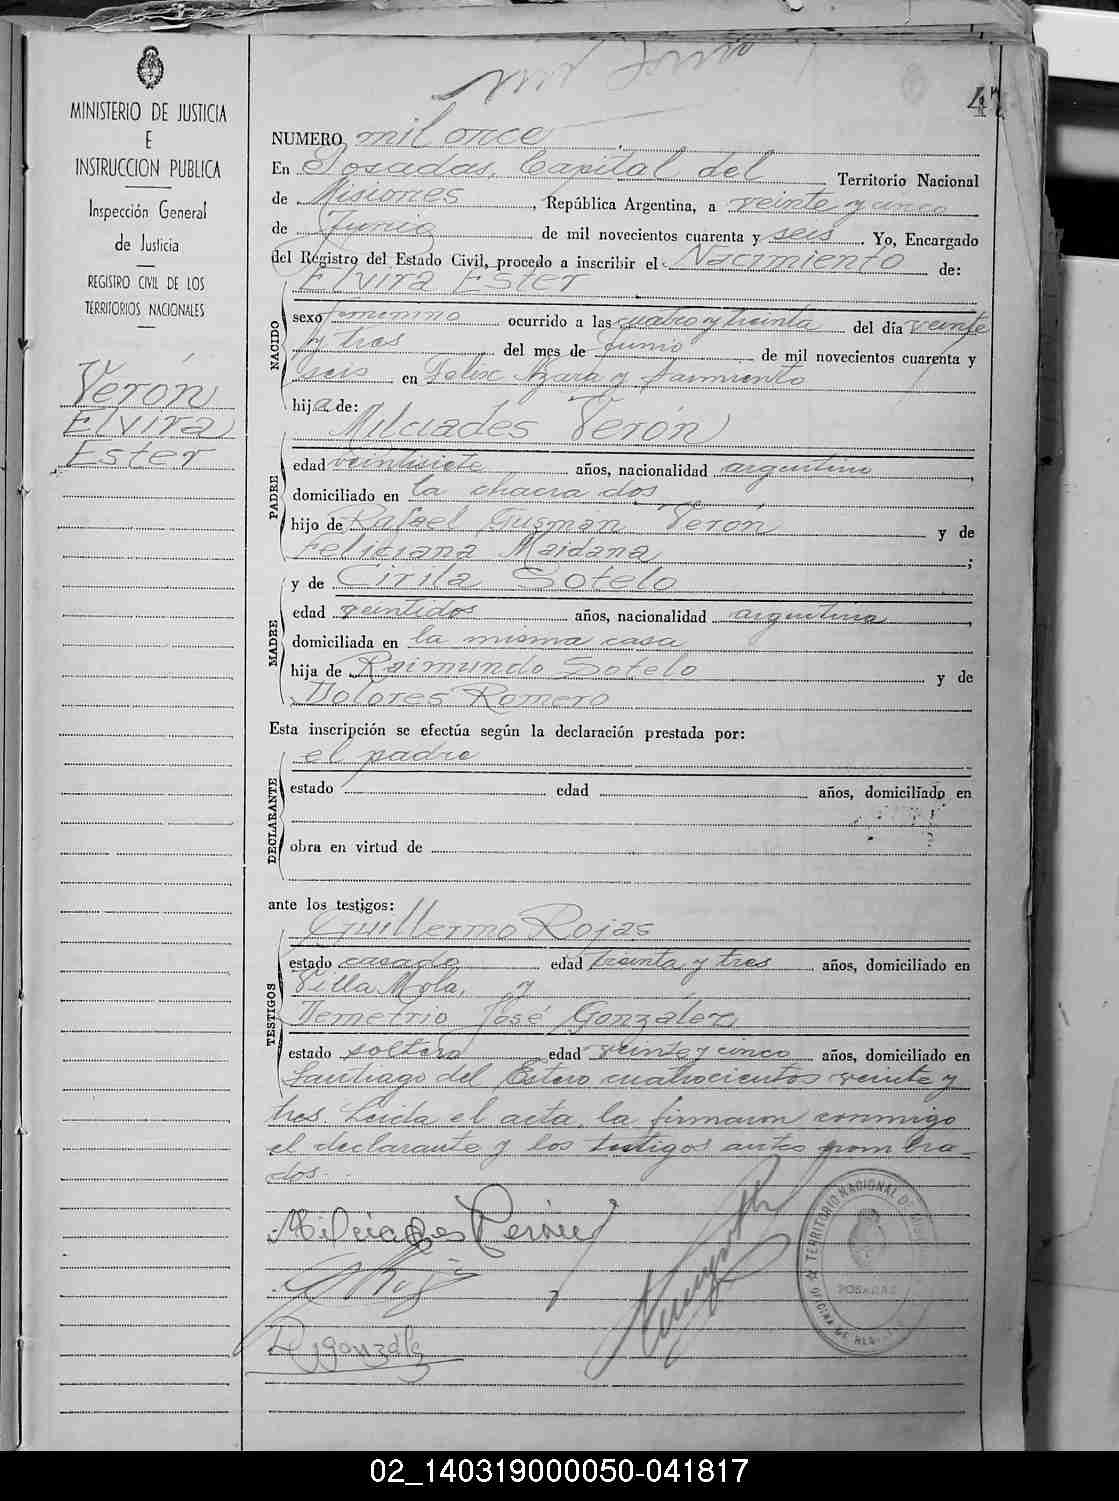 MINISTERIO DE JUSTICIA
E
INSTRUCCION PUBLICA
Inspección General
de Justicia
REGISTRO CIVIL DE LOS
TERRITORIOS NACIONALES
Verón
Elvira
Ester
47
NUMERO mil once
En Posadas, Capital del Territorio Nacional
de Misiones, República Argentina, a veinte y cinco
de Junio de mil novecientos cuarenta y seis. Yo, Encargado
del Registro del Estado Civil, procedo a inscribir el Nacimiento de:
NACIDO
Elvira Ester
sexo femenino ocurrido a las cuatro y treinta del día veinte
y tres del mes de Junio de mil novecientos cuarenta y
seis en Felix Azara y Sarmiento
hija de:
PADRE
Milciades Verón
edad veintisiete años, nacionalidad argentino,
domiciliado en la chacra dos
hijo de Rafael Guzmán Verón y de
Feliciana Maidana;
y de Cirila Sotelo
MADRE
edad veintidos años, nacionalidad argentina,
domiciliada en la misma casa
hija de Raimundo Sotelo y de
Dolores Romero
Esta inscripción se efectúa según la declaración prestada por:
DECLARANTE
el padre
estado edad años, domiciliado en
obra en virtud de
ante los testigos:
TESTIGOS
Guillermo Rojas
estado casado edad treinta y tres años, domiciliado en
Villa Mola, y
Demetrio José González
estado soltero edad veinte y cinco años, domiciliado en
Santiago del Estero cuatrocientos veinte y
tres. Leida el acta, la firmaron conmigo
el declarante y los testigos antes nombra-
dos.
Milciades Verón
GRojas
D J gonzalez
TERRITORIO NACIONAL DE MISIONES
POSADAS
OFICINA DE
02_140319000050-041817